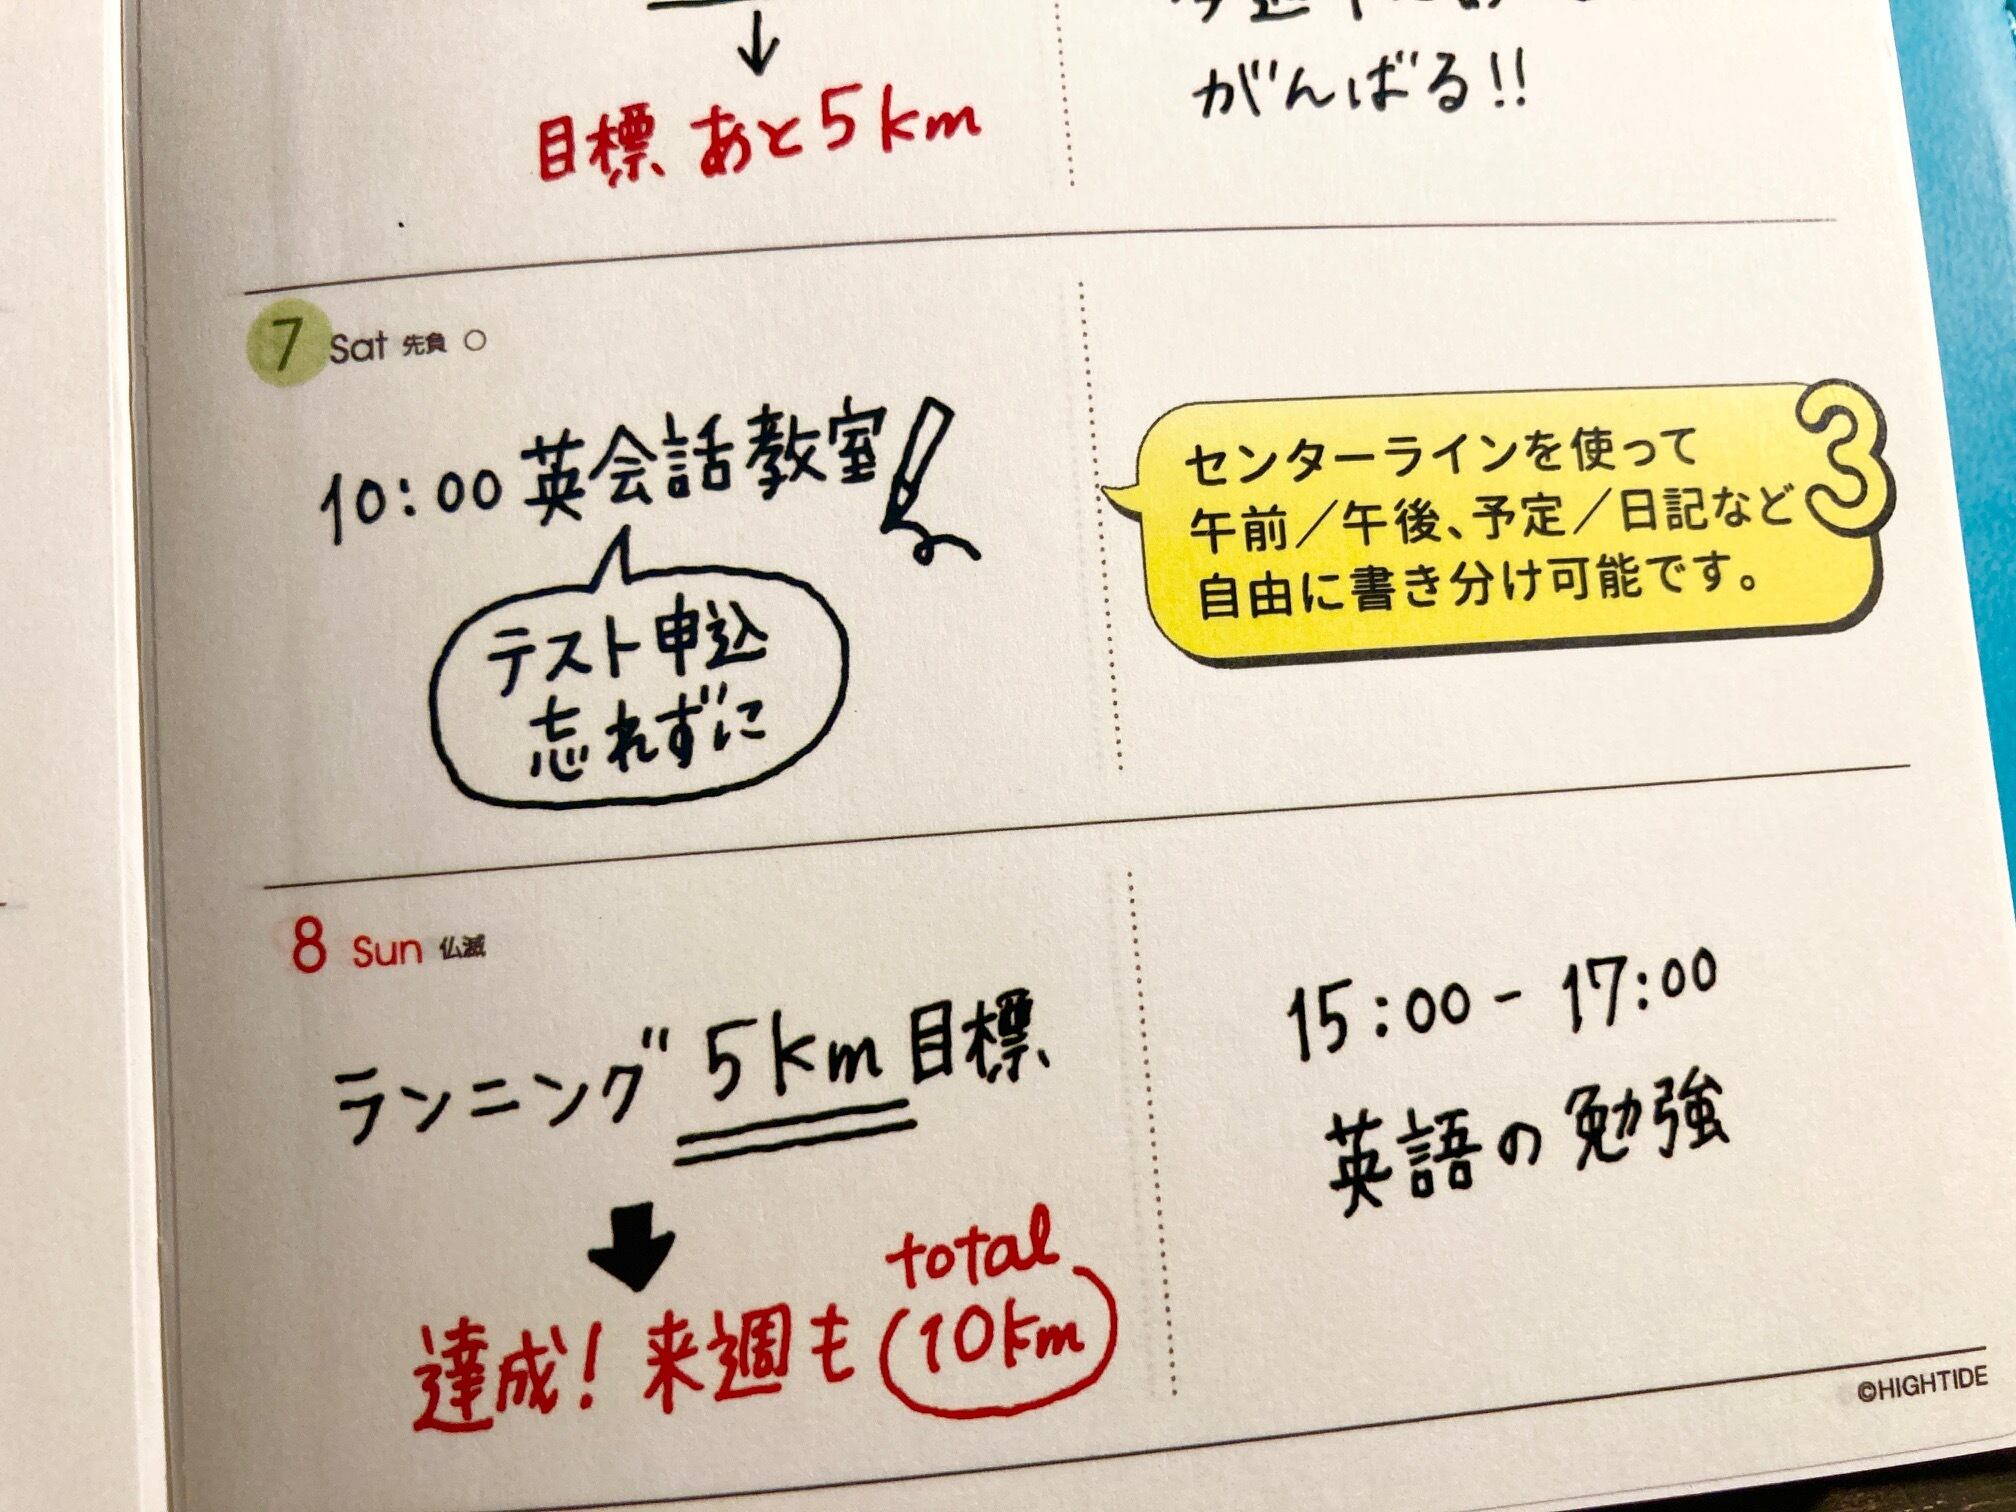 目標 あと5km
がんばる!!
7 Sat 先負 ○
10:00 英会話教室
テスト申込
忘れずに
センターラインを使って
午前／午後、予定／日記など
自由に書き分け可能です。
3
8 Sun 仏滅
ランニング 5km 目標
達成! 来週も total
10km
15:00 - 17:00
英語の勉強
©HIGHTIDE